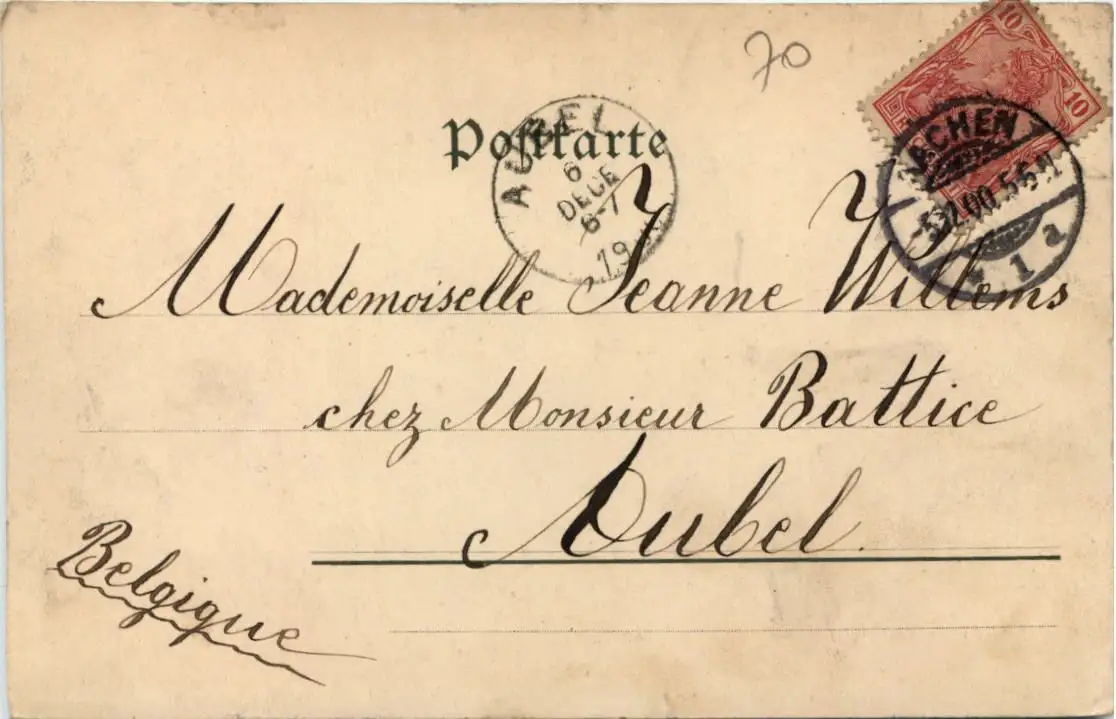 70
10
10
AACHEN
-5.12.00.5-6N.
* 1 a
Postkarte
AUBEL
6
DECE
6-7
19
Mademoiselle Jeanne Willems
chez Monsieur Battice
Aubel.
Belgique